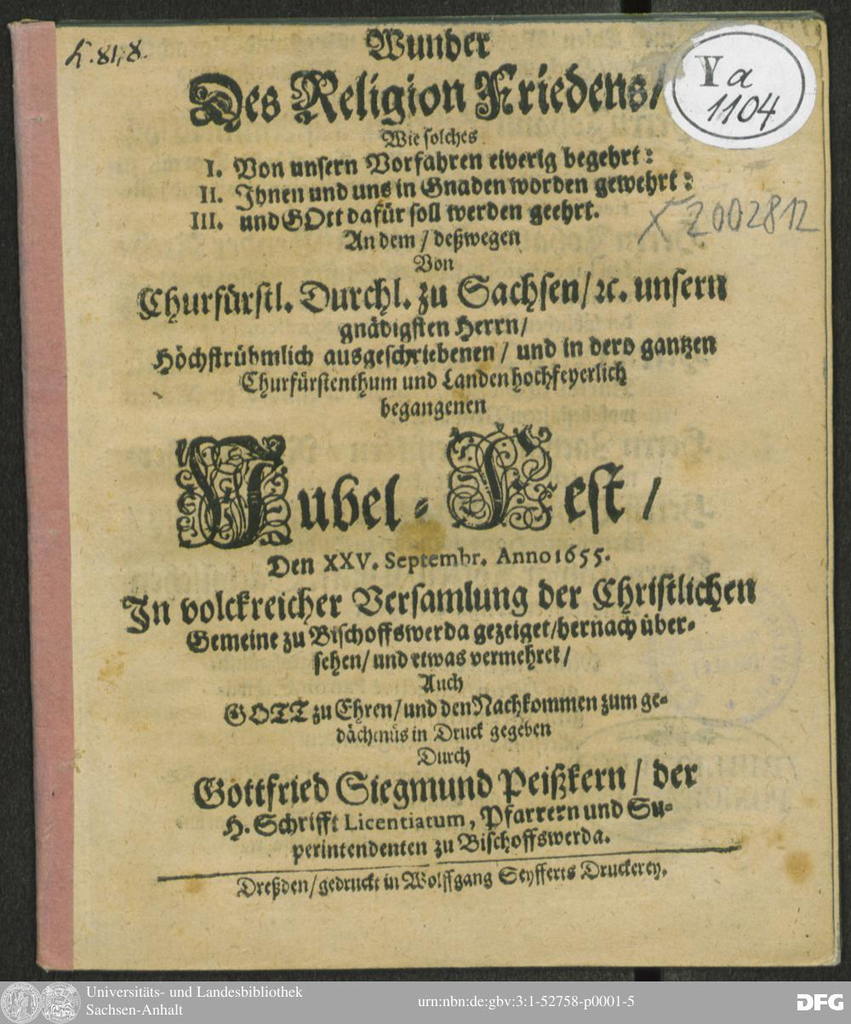 K. 81, 8.
Wunder
Des Religion Friedens/
Y a
1104
Wie solches
I. Von unsern Vorfahren eiverig begehrt:
II. Ihnen und uns in Gnaden worden gewehrt:
III. und GOtt dafür soll werden geehrt.
X 2002812
An dem / deßwegen
Von
Churfürstl. Durchl. zu Sachsen/ ꝛc. unsern
gnädigsten Herrn/
Höchstrühmlich ausgeschriebenen / und in dero gantzen
Churfürstenthum und Landen hochfeyerlich
begangenen
Jubel-Fest /
Den XXV. Septembr. Anno 1655.
In volckreicher Versamlung der Christlichen
Gemeine zu Bischoffswerda gezeiget/ hernach über-
sehen/ und etwas vermehret/
Auch
GOTT zu Ehren/ und den Nachkommen zum ge-
dächtnüs in Druck gegeben
Durch
Gottfried Siegmund Peißkern/ der
H. Schrifft Licentiatum, Pfarrern und Su-
perintendenten zu Bischoffswerda.
Dreßden/ gedruckt in Wolffgang Seyfferts Druckerey.
Universitäts- und Landesbibliothek
Sachsen-Anhalt
urn:nbn:de:gbv:3:1-52758-p0001-5
DFG